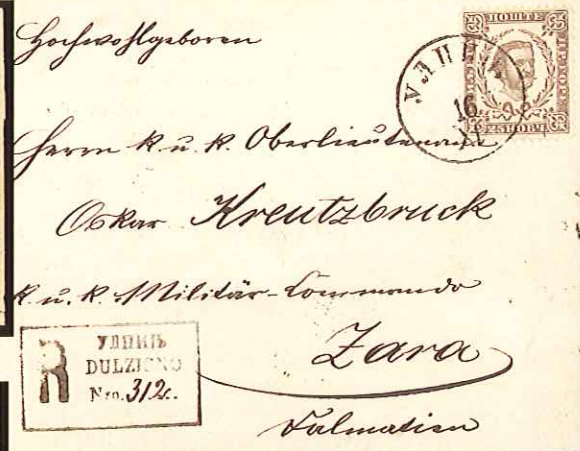 Hochwohlgeboren
ПОШТЕ
16
Herrn k. u. k. Oberlieutenant
Oskar Kreutzbruck
k. u. k. Militär-Commando
Zara
Dalmatien
R
УЛЦИЊ
DULZIGNO
Nro. 312